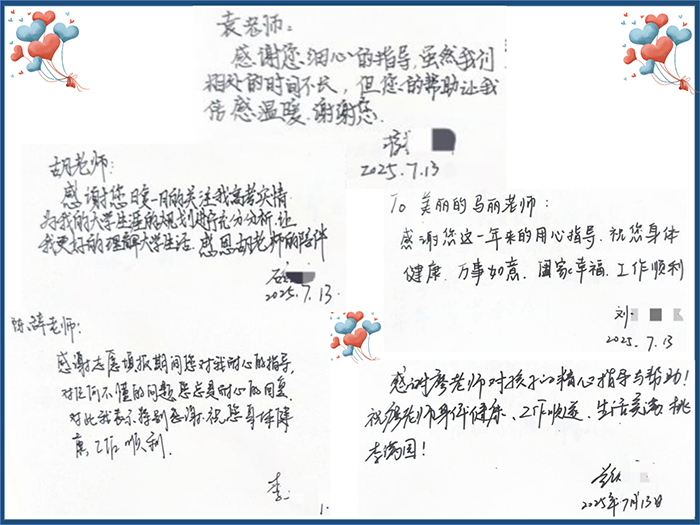 袁老师:
感谢您细心的指导,虽然我们
相处的时间不长,但您的帮助让我
倍感温暖.谢谢您.
2025.7.13
胡老师:
感谢您日复一日的关注我高考实情
为我的大学生涯的规划进行充分分析,让
我更好的理解大学生活.感恩胡老师的陪伴
石
2025.7.13
To 美丽的马丽老师:
感谢您这一年来的用心指导.祝您身体
健康.万事如意.阖家幸福.工作顺利
刘
2025.7.13
陈 老师:
感谢志愿填报期间您对我耐心的指导,
对任何不懂的问题您总是耐心的回复,
对此我表示特别感谢.祝您身体健
康,工作顺利.
李
感谢廖老师对孩子的精心指导与帮助!
祝廖老师身体健康、工作顺遂、生活美满、桃
李满园!
2025年7月13日